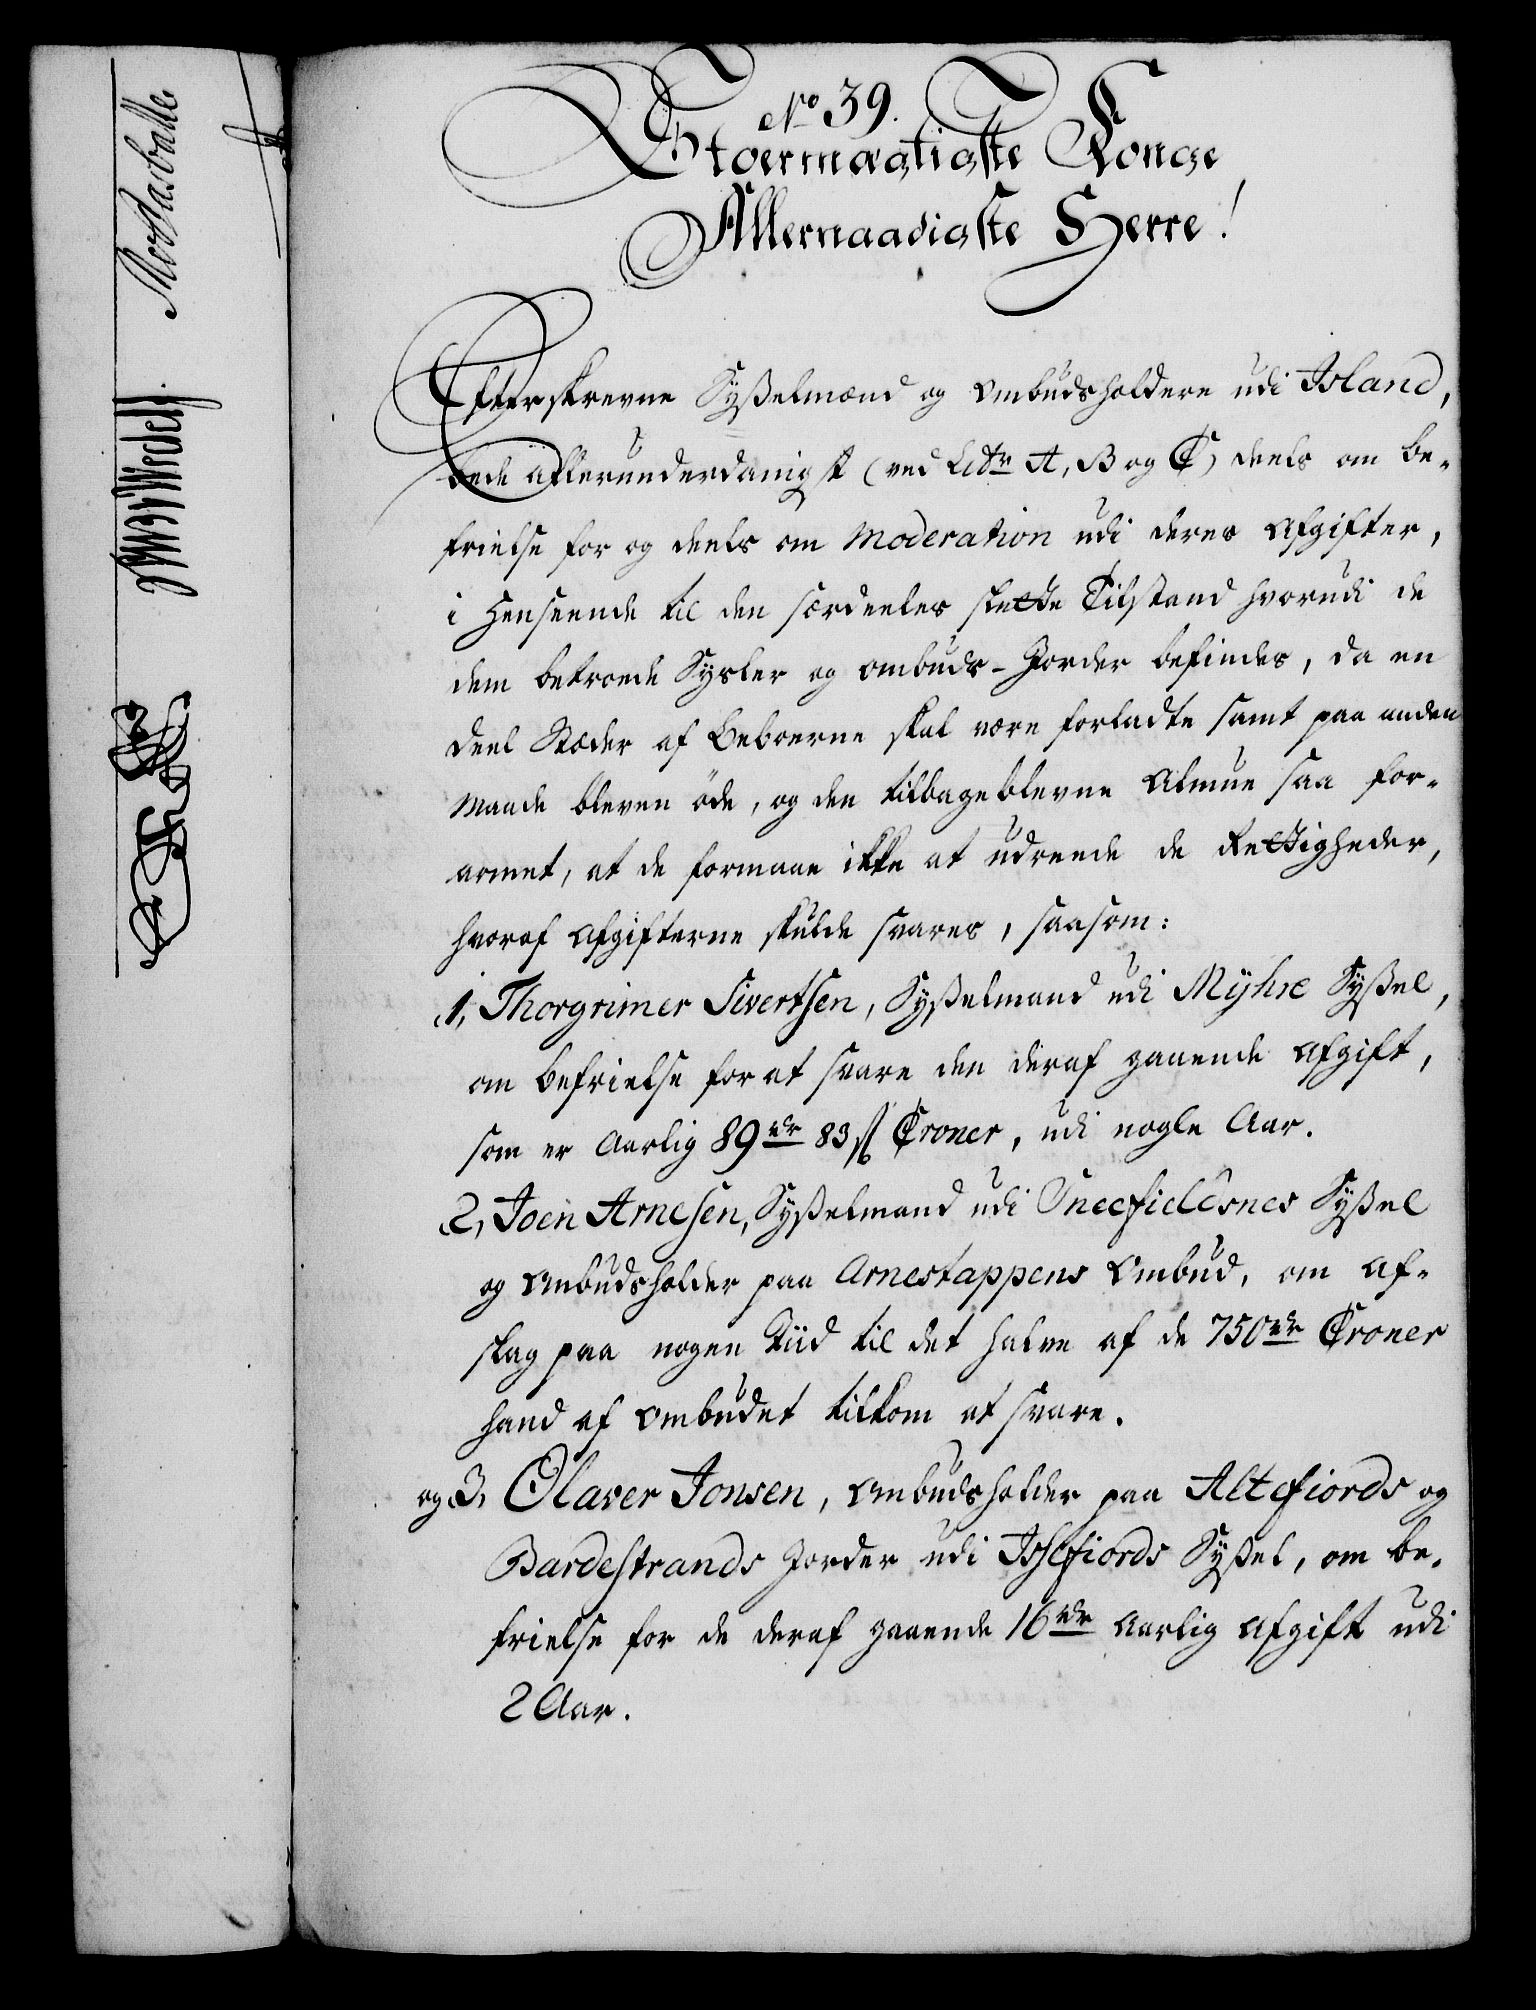 No 39.
Stoermægtigste Konge
Allernaadigste Herre!
Efterskrevne Sysselmænd og Ombudsholdere udi Island,
bede allerunderdanigst (ved Litr A, B og C) deels om be-
frielse for og deels om Moderation udi deres Afgifter,
i Henseende til den særdeeles slette Tilstand hvorudi de
dem betroede Sysler og Ombuds-Jorder befindes, da en
deel Stæder af Beboerne skal være forladte samt paa anden
Maade bleven öde, og den tilbageblevne Almue saa for-
armet, at de formaae ikke at udreede de Rettigheder,
hvoraf Afgifterne skulde svares, saasom:
1, Thorgrimer Sivertsen, Sysselmand udi Myhre Syssel,
om befrielse for at svare den deraf gaaende Afgift,
som er Aarlig 89 rdr 83 ß Croner, udi nogle Aar.
2, Joen Arnesen, Sysselmand udi Sneefieldsnes Syssel
og Ombudsholder paa Arnestappens Ombud, om Af-
slag paa nogen Tiid til det halve af de 750 rdr Croner
hand af Ombudet tilkom at svare.
og 3, Olaver Jonsen, Ombudsholder paa Altefiords og
Bardestrands Jorder udi Isefiords Syssel, om be-
frielse for de deraf gaaende 16 rdr Aarlig Afgift udi
2 Aar.